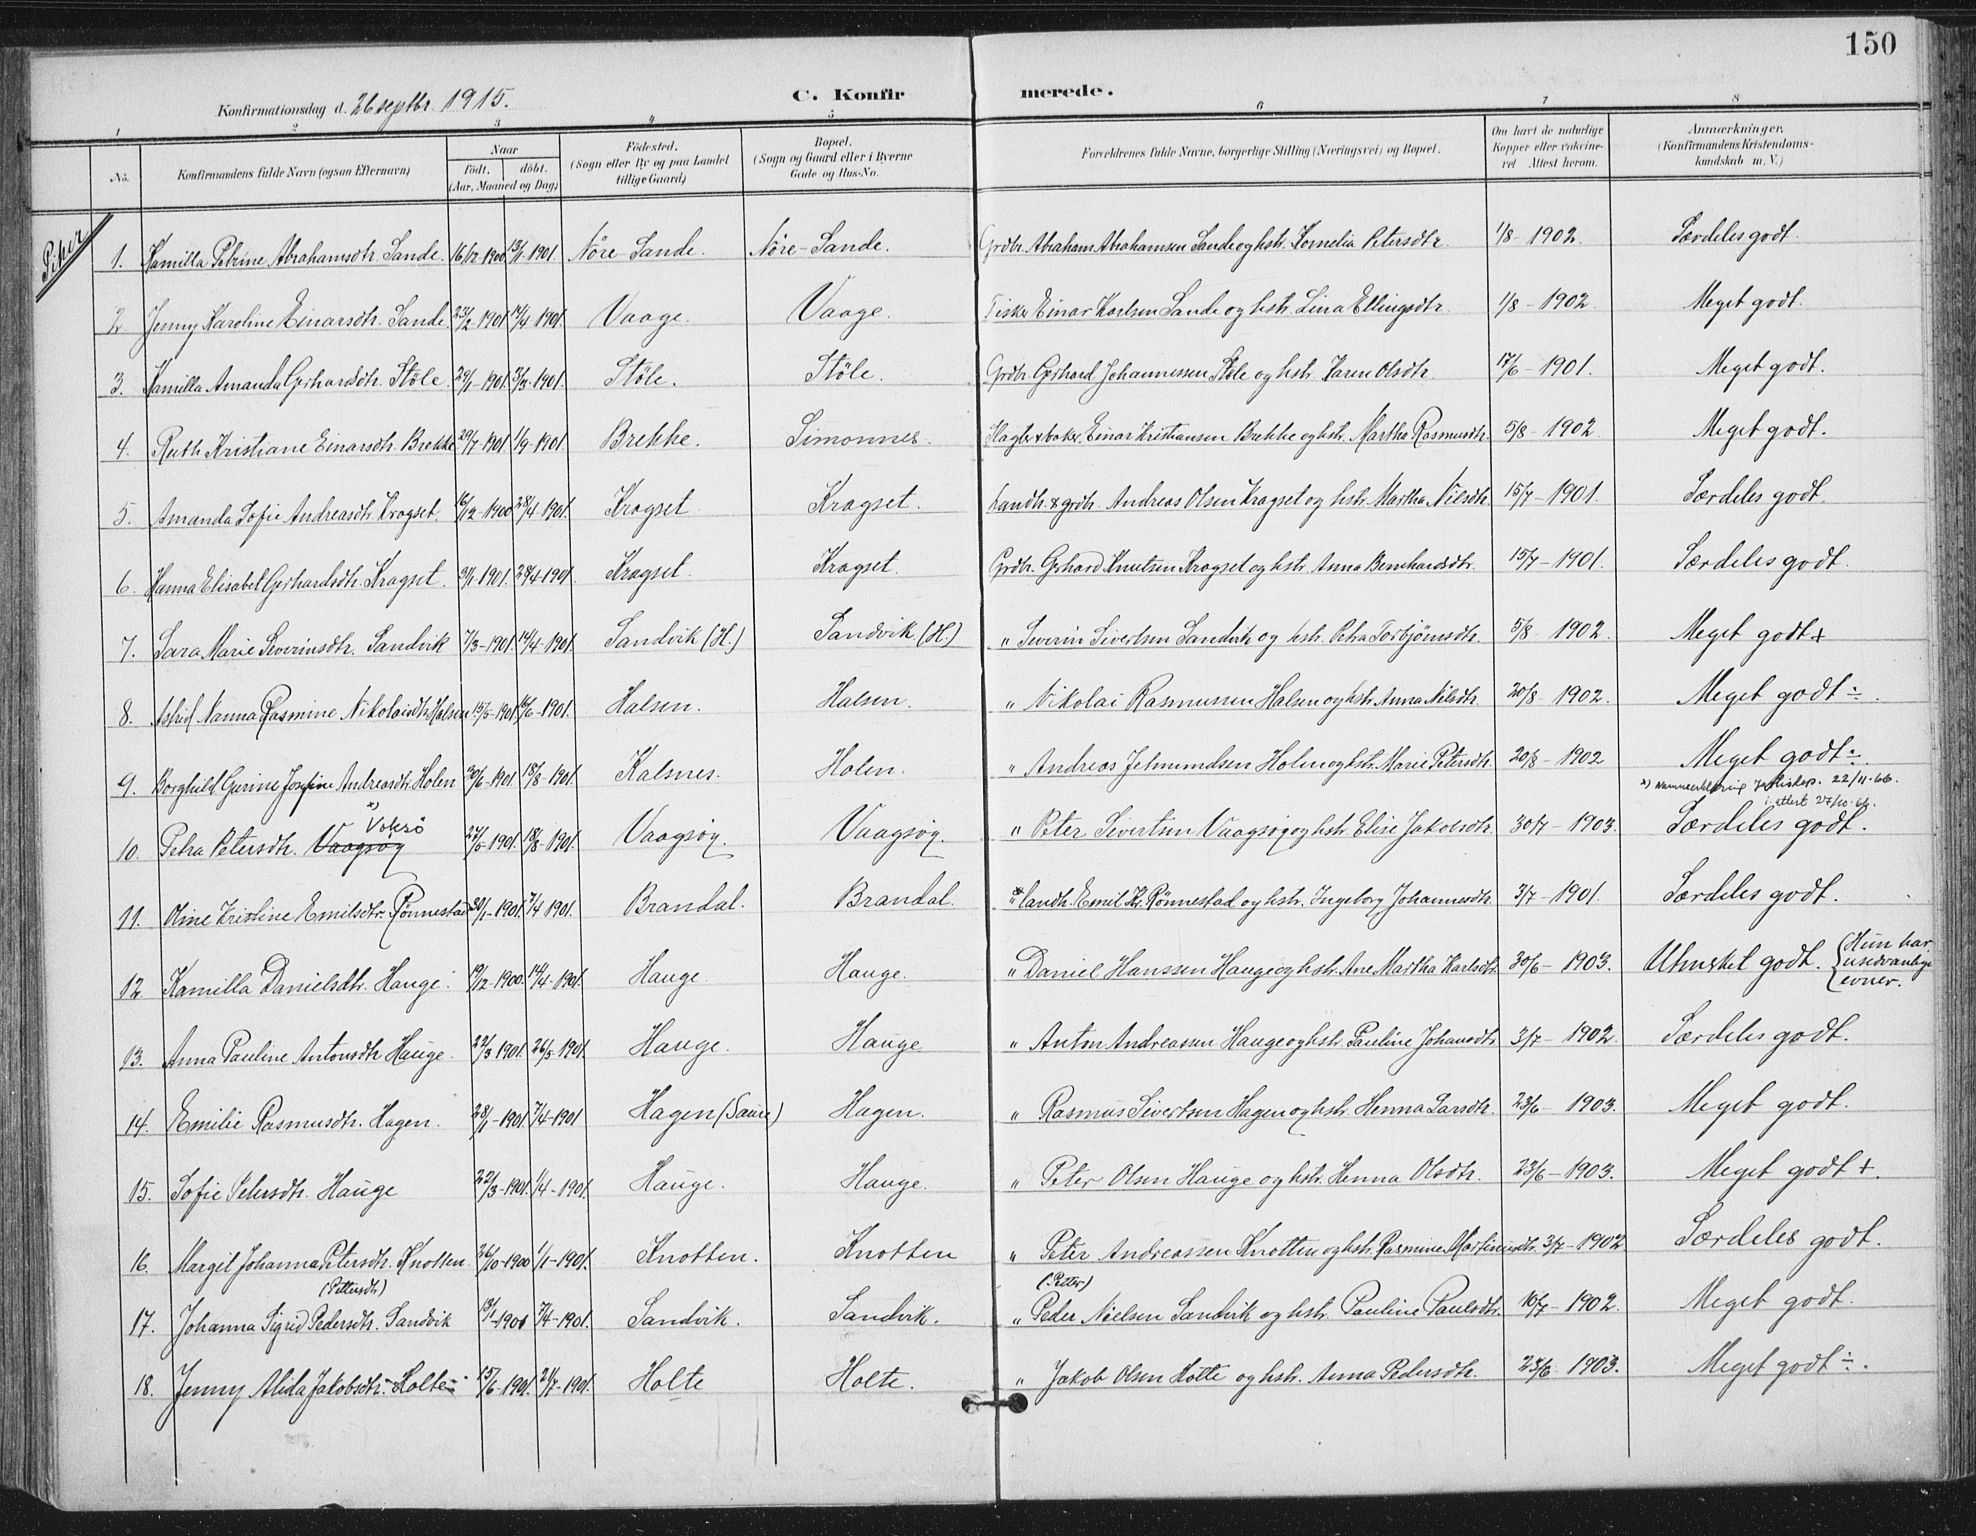 150
Konfirmationsdag d. 26 septbr. 1915.
C. Konfirmerede.
1 2 3 4 5 6 7 8
No. Konfirmandens fulde Navn (ogsaa Efternavn) Naar födt. döbt. (Aar, Maaned og Dag) Födested. (Sogn eller By og paa Landet tillige Gaard) Bopæl. (Sogn og Gaard eller i Byerne Gade og Hus-No. Forældrenes fulde Navne, borgerlige Stilling (Næringsvei) og Bopæl. Om havt de naturlige Kopper eller vaccineret Attest herom. Anmærkninger. (Konfirmandens Kristendomskundskab m. V.)
Piker
1. Kamilla Petrine Abrahamsdtr. Sande. 16/12 1900 13/1 1901. Nöre-Sande. Nöre-Sande. Grdbr. Abraham Abrahamsen Sande og hstr. Kornelia Petersdtr. 1/8 - 1902. Særdeles godt.
2. Jenny Karoline Einarsdtr. Sande 23/2 1901 14/4 1901. Vaage. Vaage. Fisker Einar Karlsen Sande og hstr. Lina Ellingsdtr. 1/8 - 1902. Meget godt.
3. Kamilla Amanda Gerhardsdtr. Stöle. 29/1 -1901. 3/3 -1901. Stöle. Stöle. Grdbr. Gerhard Johannessen Stöle og hstr. Karen Olsdtr. 17/6 - 1901. Meget godt.
4. Ruth Kristiane Einarsdtr. Brekke 29/7 -1901. 1/9 -1901. Brekke. Simonnes. Slagter & baker Einar Kristiansen Brekke og hstr. Martha Rasmusdtr. 5/8 - 1902. Meget godt.
5. Amanda Sofie Andreasdtr. Kragset. 16/12 - 1900 28/4 -1901. Kragset Kragset. Landh. & grdbr. Andreas Olsen Kragset og hstr. Martha Nilsdtr. 15/7 - 1901. Særdeles godt.
6. Hanna Elisabet Gerhardsdtr. Kragset. 31/1 -1901. 28/4 1901. Kragset. Kragset. Grdbr. Gerhard Knutsen Kragset og hstr. Anna Bernhardsdtr. 15/7 - 1901. Særdeles godt.
7. Sara Marie Severinsdtr. Sandvik 7/3 -1901. 14/4 -1901. Sandvik (H.) Sandvik (H.) " Severin Sivertsen Sandvik og hstr. Petra Torbjörnsdtr. 5/8 - 1902. Meget godt +
8. Astrid Nanna Rasmine Nikolaidtr. Halsen 15/5 -1901 16/6 -1901. Halsen. Halsen. " Nikolai Rasmussen Halsen og hstr. Anna Nilsdtr. 20/8 - 1902. Meget godt ÷.
9. Borghild Gurine Josefine Andreasdtr. Holen 30/6 -1901. 18/8 -1901. Kalsnes. Holen. " Andreas Jetmundsen Holen og hstr. Marie Petersdtr. 20/8 - 1902 Meget godt ÷.
22/11-66.
i attest 27/10-66.
10. Petra Petersdtr. Vaagsøy Voksö 27/5 -1901. 18/8 -1901. Vaagsøy. Vaagsøy. " Peter Sivertsen Vaagsøy og hstr. Elise Jakobsdtr. 30/7 - 1903. Særdeles godt.
11. Oline Kristine Emilsdtr. Rönnestad 30/1 -1901. 7/4 1901. Brandal. Brandal. " & landh. Emil Kr. Rönnestad og hstr. Ingeborg Johannesdtr. 3/7 - 1901. Særdeles godt.
12. Kamilla Danielsdtr. Hauge. 19/12 -1900. 14/4 -1901. Hauge Hauge. " Daniel Hanssen Hauge og hstr. Ane Martha Karlsdtr. 30/6 - 1903. Utmerket godt. {Hun har usedvanlige evner.
13. Anna Pauline Antonsdtr Hauge. 22/3 1901. 26/5 -1901. Hauge. Hauge " Anton Andreassen Hauge og hstr. Pauline Johansdtr. 3/7 - 1902. Særdeles godt.
14. Emilie Rasmusdtr. Hagen. 28/1 -1901 7/4 -1901 Hagen (Saure) Hagen. " Rasmus Sivertsen Hagen og hstr. Henna Larsdtr. 23/6 - 1903. Meget godt.
15. Sofie Petersdtr. Hauge 22/3 -1901. 1/4 -1901. Hauge. Hauge. " Peter Olsen Hauge og hstr. Henna Olsdtr. 23/6 - 1903. Meget godt +.
16. Margit Johanna Petersdtr. Knotten 26/10 -1900 1/1 -1901. Knotten. Knotten " Peter Andreassen Knotten og hstr. Rasmine Martinusdtr. 3/7 - 1902 Særdeles godt.
17. Johanna Sigrid Pedersdtr. (Pettersdtr) Sandvik 13/1 -1901 7/4 -1901. Sandvik. Sandvik. " Peder (Petter) Nielsen Sandvik og hstr. Pauline Paulsdtr. 10/7 - 1902. Meget godt.
18. Jenny Alida Jakobsdtr. Holte 15/6 -1901. 21/7 -1901. Holte Holte. " Jakob Olsen Holte og hstr. Anna Pedersdtr. 23/6 1903. Meget godt ÷.